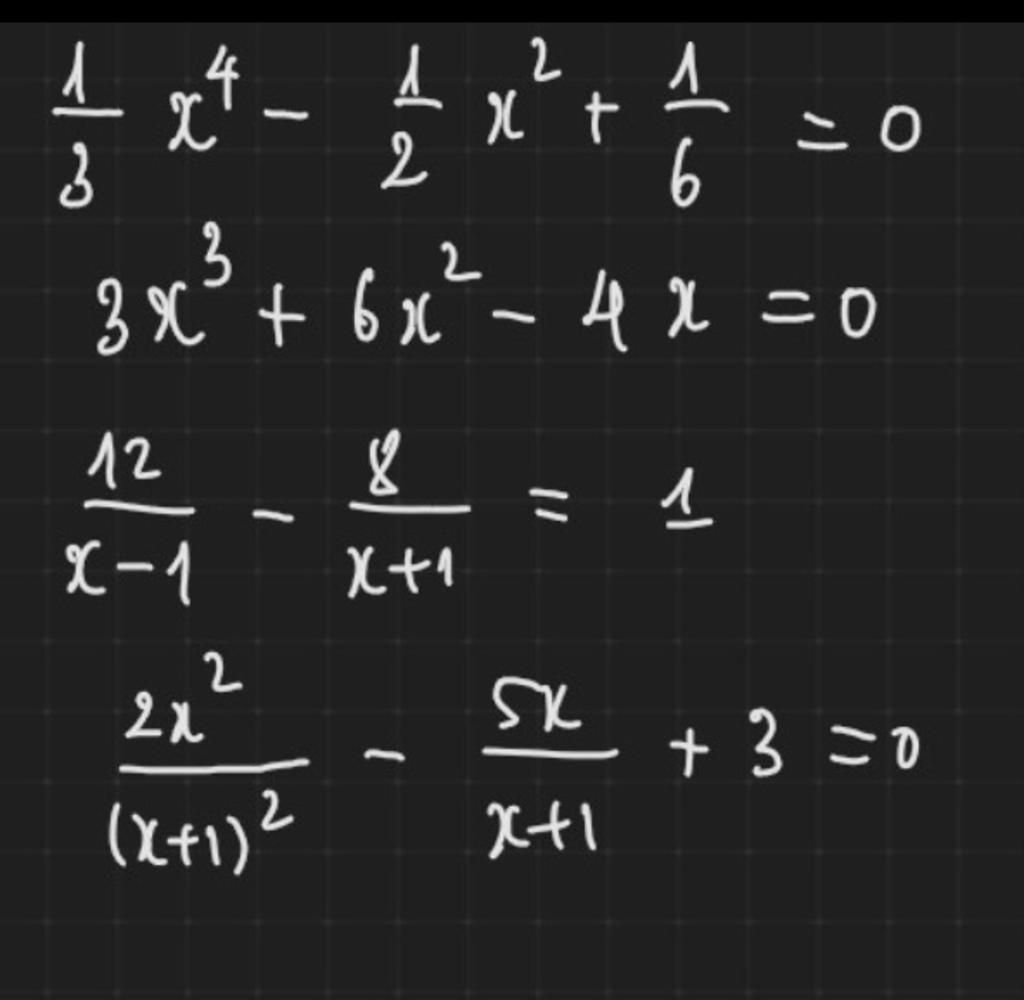 1/3 x⁴ - 1/2 x² + 1/6 = 0
3x³ + 6x² - 4x = 0
12/(x-1) - 8/(x+1) = 1
2x²/(x+1)² - 5x/(x+1) + 3 = 0